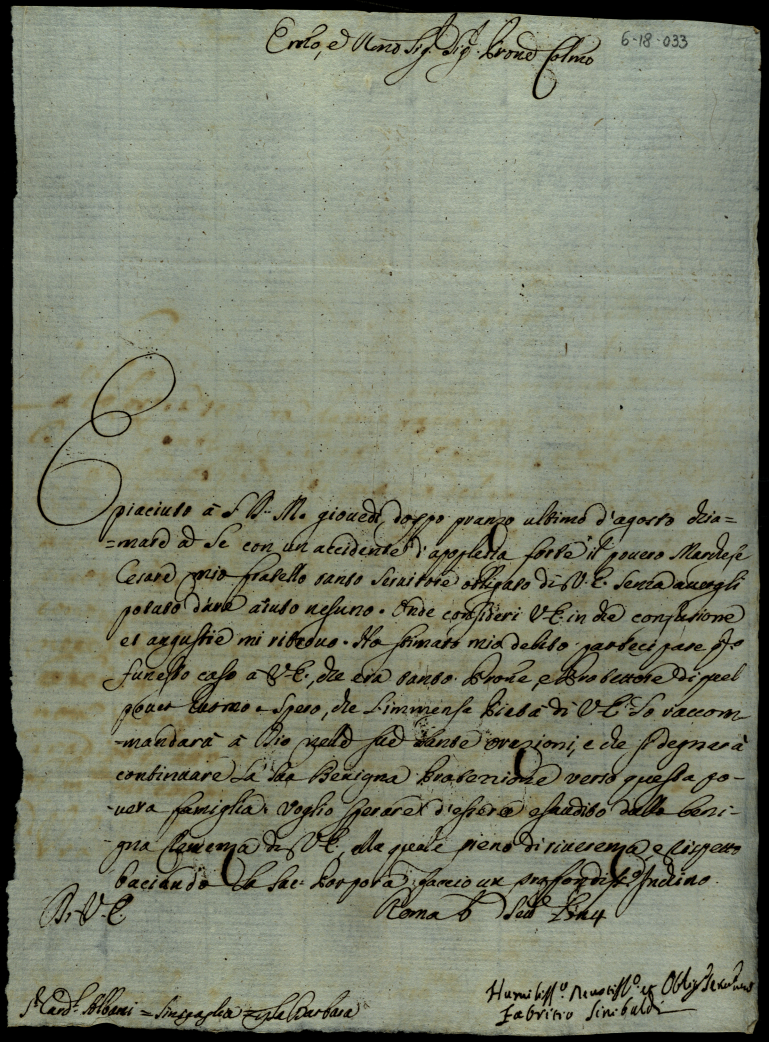 Emo, e Rmo Sig.r Sig.r Prone Colmo 6-18-033
È piaciuto à S. D. M. giovedì doppo pranzo ultimo d'agosto chia=
=mare à Se con un accidente d'apoplesia forte il povero Marchese
Cesare mio fratello tanto Servitore obligato di V. E. senza avergli
potuto dare aiuto nesuno. Onde consideri V. E. in che confusione
et angustie mi ritrovo. Ho stimato mio debito partecipare q.to
funesto caso à V. E., che era tanto Prone, e Protettore di quel
pover huomo e Spero, che l'immensa Pietà di V. E. lo raccom
mandarà à Dio nelle sue sante orazioni, e che si degnarà
continuare la sua Benigna Protenzione verso questa po-
-vera famiglia. Voglio sperare d'essere esaudito dalla beni-
gna Clemenza di V. E. alla quale pieno di riverenza, e rispetto
baciando la Sac: Porpora faccio un profondiss.o Inchino.
Di V. E. Roma 6 Sett.e
S.r Card.l Albani = Sinigaglia = p la Barbara
Humiliss.o Devotiss.o et Oblig.mo Serv.re
Fabritio Sinibaldi